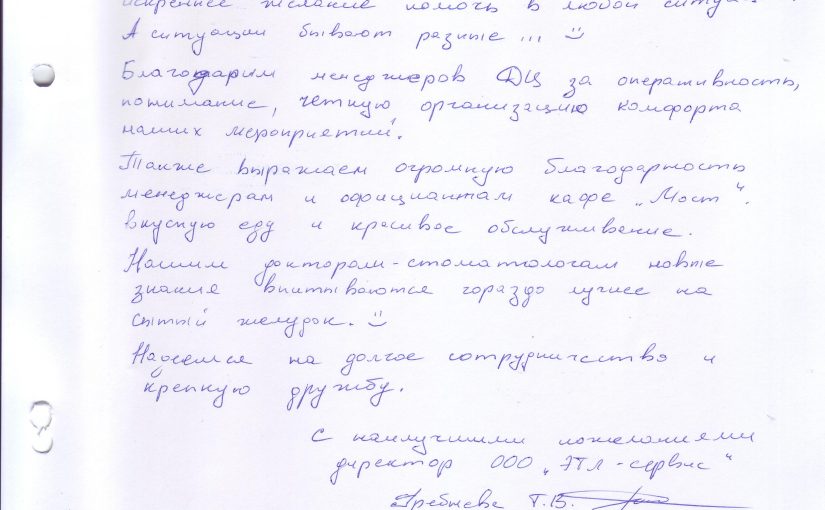 искреннее желание помочь в любой
А ситуации бывают разные... :)
Благодарим менеджеров ДЦ за оперативность,
понимание, четкую организацию комфорта
наших мероприятий.
Также выражаем огромную благодарность
менеджерам и официантам кафе „Мост“.
вкусную еду и красивое обслуживание.
Нашим докторам-стоматологам новые
знания впитываются гораздо лучше на
сытый желудок. :)
Надеемся на долгое сотрудничество и
крепкую дружбу.
С наилучшими пожеланиями
директор ООО „ЭТЛ-сервис“
Гребнева Т.В.